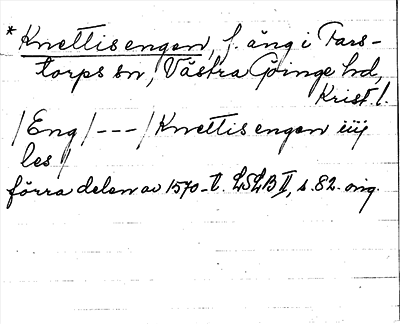 * Knettisengen, f. äng i Fars-
torps sn, Västra Göinge hd,
Krist. l.
/Eng/ --- /Knettisengen iiij
les/
förra delen av 1570-t. LSLB II, s. 82. orig.